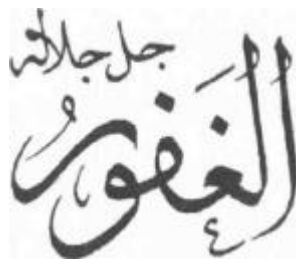 جل جلاله
الغفور